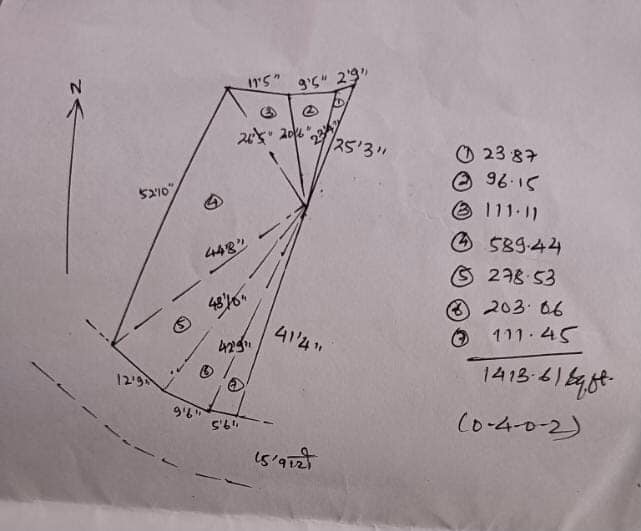 N
11'5" 9'5" 2'9"
③ ② ①
26'5" 20'6" 25'3"
52'10"
④
44'8"
48'10"
⑤
42'9" 41'4"
⑥ ⑦
12'9"
9'6"
5'6"
① 23.87
② 96.15
③ 111.11
④ 589.44
⑤ 278.53
⑥ 203.06
⑦ 111.45
1413.61 Sq.ft.
(0-4-0-2)